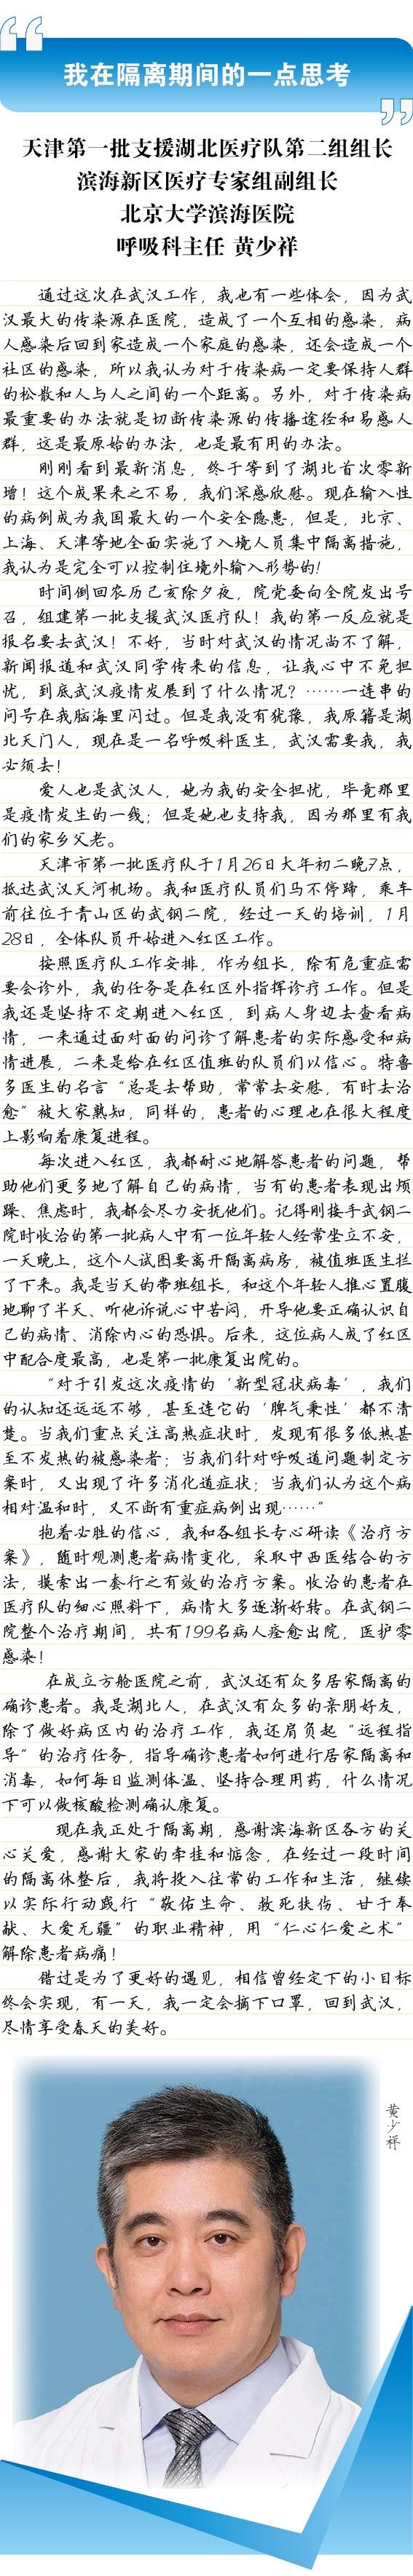 我在隔离期间的一点思考
天津第一批支援湖北医疗队第二组组长
滨海新区医疗专家组副组长
北京大学滨海医院
呼吸科主任 黄少祥
通过这次在武汉工作，我也有一些体会，因为武
汉最大的传染源在医院，造成了一个互相的感染，病
人感染后回到家造成一个家庭的感染，还会造成一个
社区的感染，所以我认为对于传染病一定要保持人群
的松散和人与人之间的一个距离。另外，对于传染病
最重要的办法就是切断传染源的传播途径和易感人
群，这是最原始的办法，也是最有用的办法。
刚刚看到最新消息，终于等到了湖北首次零新
增！这个成果来之不易，我们深感欣慰。现在输入性
的病例成为我国最大的一个安全隐患，但是，北京、
上海、天津等地全面实施了入境人员集中隔离措施，
我认为是完全可以控制住境外输入形势的！
时间倒回农历己亥除夕夜，院党委向全院发出号
召，组建第一批支援武汉医疗队！我的第一反应就是
报名要去武汉！不好，当时对武汉的情况尚不了解，
新闻报道和武汉同学传来的信息，让我心中不免担
忧，到底武汉疫情发展到了什么情况？……一连串的
问号在我脑海里闪过。但是我没有犹豫，我原籍是湖
北天门人，现在是一名呼吸科医生，武汉需要我，我
必须去！
爱人也是武汉人，她为我的安全担忧，毕竟那里
是疫情发生的一线；但是她也支持我，因为那里有我
们的家乡父老。
天津市第一批医疗队于1月26日大年初二晚7点，
抵达武汉天河机场。我和医疗队员们马不停蹄，乘车
前往位于青山区的武钢二院，经过一天的培训，1月
28日，全体队员开始进入红区工作。
按照医疗队工作安排，作为组长，除有危重症需
要会诊外，我的任务是在红区外指挥诊疗工作。但是
我还是坚持不定期进入红区，到病人身边去查看病
情，一来通过面对面的问诊了解患者的实际感受和病
情进展，二来是给在红区值班的队员们以信心。特鲁
多医生的名言“总是去帮助，常常去安慰，有时去治
愈”被大家熟知，同样的，患者的心理也在很大程度
上影响着康复进程。
每次进入红区，我都耐心地解答患者的问题，帮
助他们更多地了解自己的病情，当有的患者表现出烦
躁、焦虑时，我都会尽力安抚他们。记得刚接手武钢二
院时收治的第一批病人中有一位年轻人经常坐立不安，
一天晚上，这个人试图要离开隔离病房，被值班医生拦
了下来。我是当天的带班组长，和这个年轻人推心置腹
地聊了半天、听他诉说心中苦闷，开导他要正确认识自
己的病情、消除内心的恐惧。后来，这位病人成了红区
中配合度最高，也是第一批康复出院的。
“对于引发这次疫情的‘新型冠状病毒’，我们
的认知还远远不够，甚至连它的‘脾气秉性’都不清
楚。当我们重点关注高热症状时，发现有很多低热甚
至不发热的被感染者；当我们针对呼吸道问题制定方
案时，又出现了许多消化道症状；当我们认为这个病
相对温和时，又不断有重症病例出现……”
抱着必胜的信心，我和各组长专心研读《治疗方
案》，随时观测患者病情变化，采取中西医结合的方
法，摸索出一套行之有效的治疗方案。收治的患者在
医疗队的细心照料下，病情大多逐渐好转。在武钢二
院整个治疗期间，共有199名病人痊愈出院，医护零
感染！
在成立方舱医院之前，武汉还有众多居家隔离的
确诊患者。我是湖北人，在武汉有众多的亲朋好友，
除了做好病区内的治疗工作，我还肩负起“远程指
导”的治疗任务，指导确诊患者如何进行居家隔离和
消毒，如何每日监测体温、坚持合理用药，什么情况
下可以做核酸检测确认康复。
现在我正处于隔离期，感谢滨海新区各方的关
心关爱，感谢大家的牵挂和惦念，在经过一段时间
的隔离休整后，我将投入往常的工作和生活，继续
以实际行动践行“敬佑生命、救死扶伤、甘于奉
献、大爱无疆”的职业精神，用“仁心仁爱之术”
解除患者病痛！
错过是为了更好的遇见，相信曾经定下的小目标
终会实现，有一天，我一定会摘下口罩，回到武汉，
尽情享受春天的美好。
黄少祥